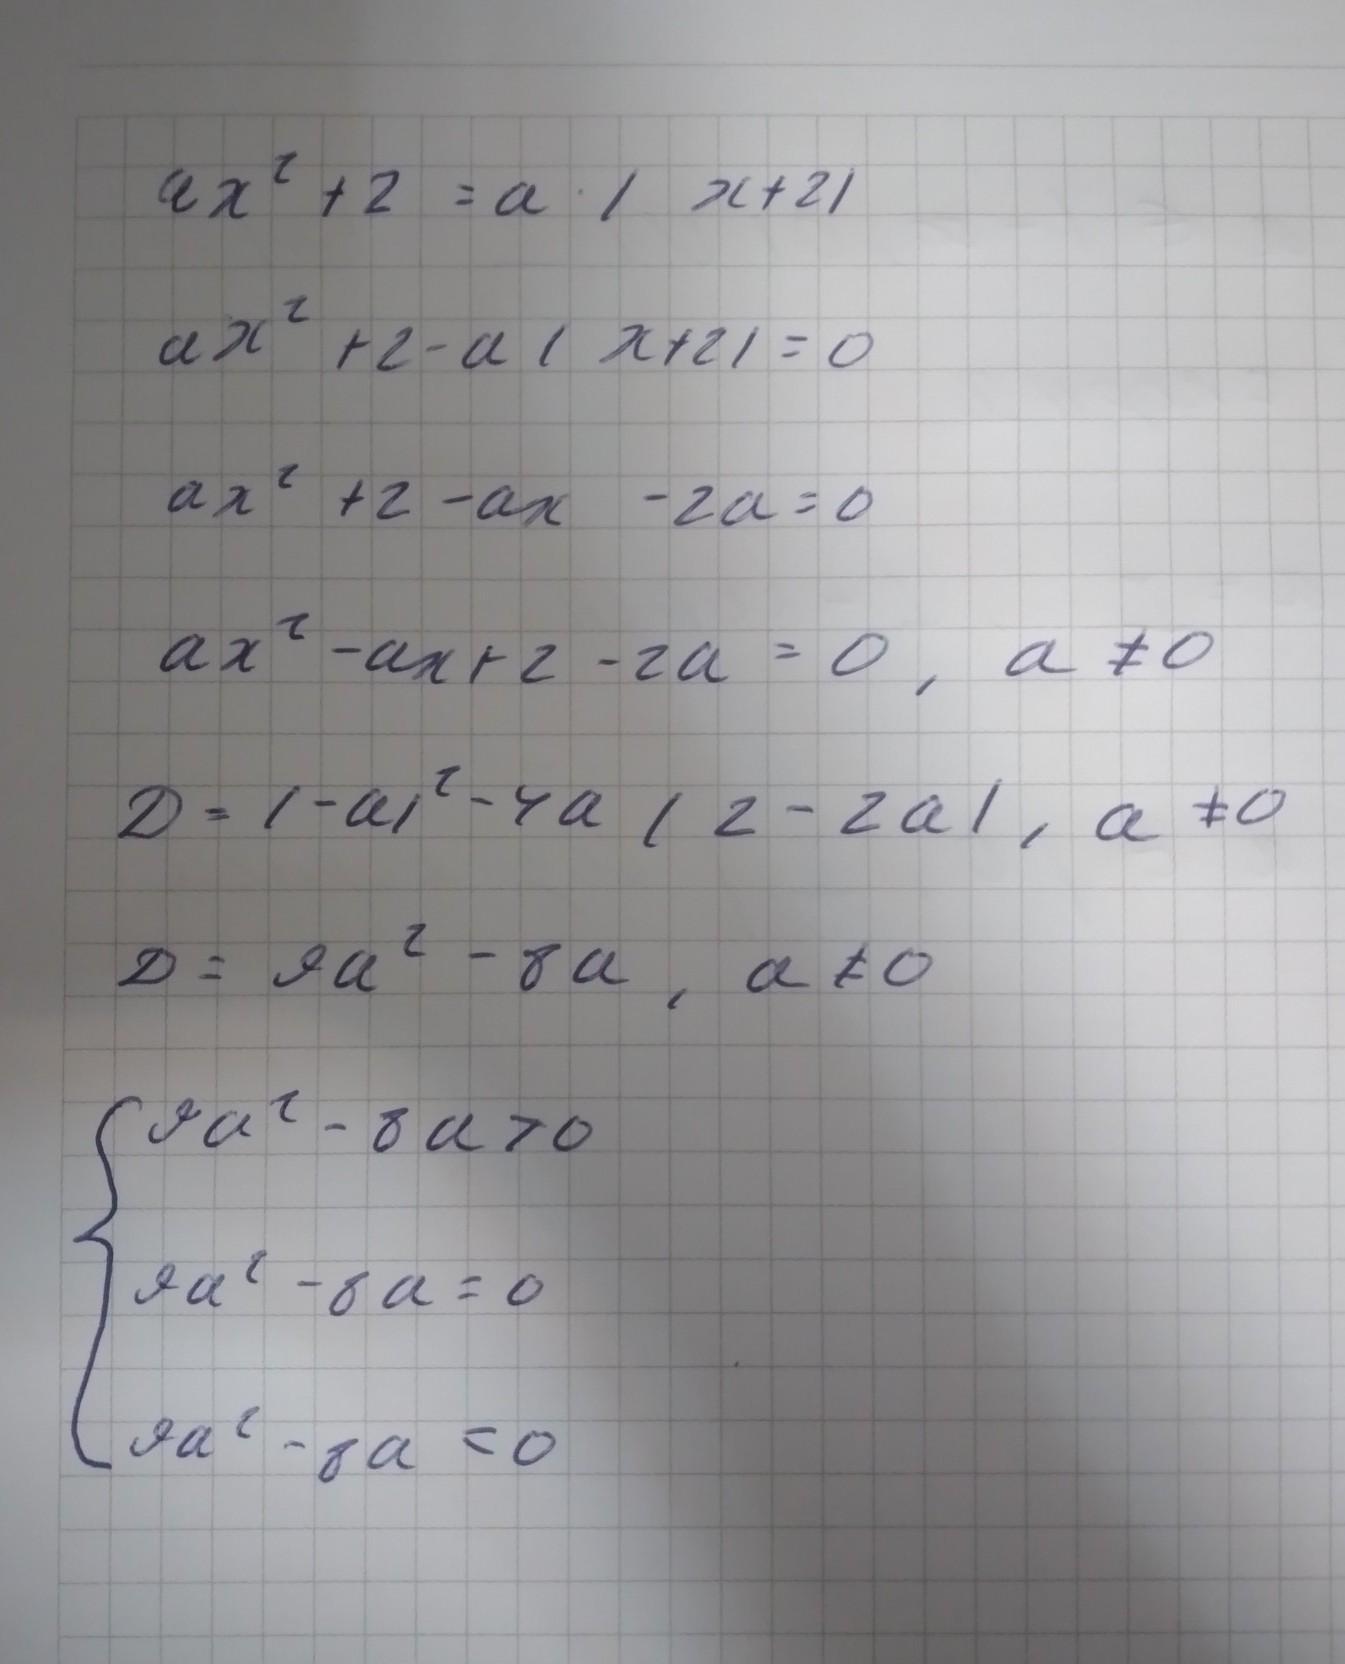 ax² + 2 = a · ( x+2)
ax² + 2 - a ( x+2) = 0
ax² + 2 - ax - 2a = 0
ax² - ax + 2 - 2a = 0, a ≠ 0
D = (-a)² - 4a ( 2 - 2a), a ≠ 0
D = 9a² - 8a, a ≠ 0
{ 9a² - 8a > 0
9a² - 8a = 0
9a² - 8a < 0